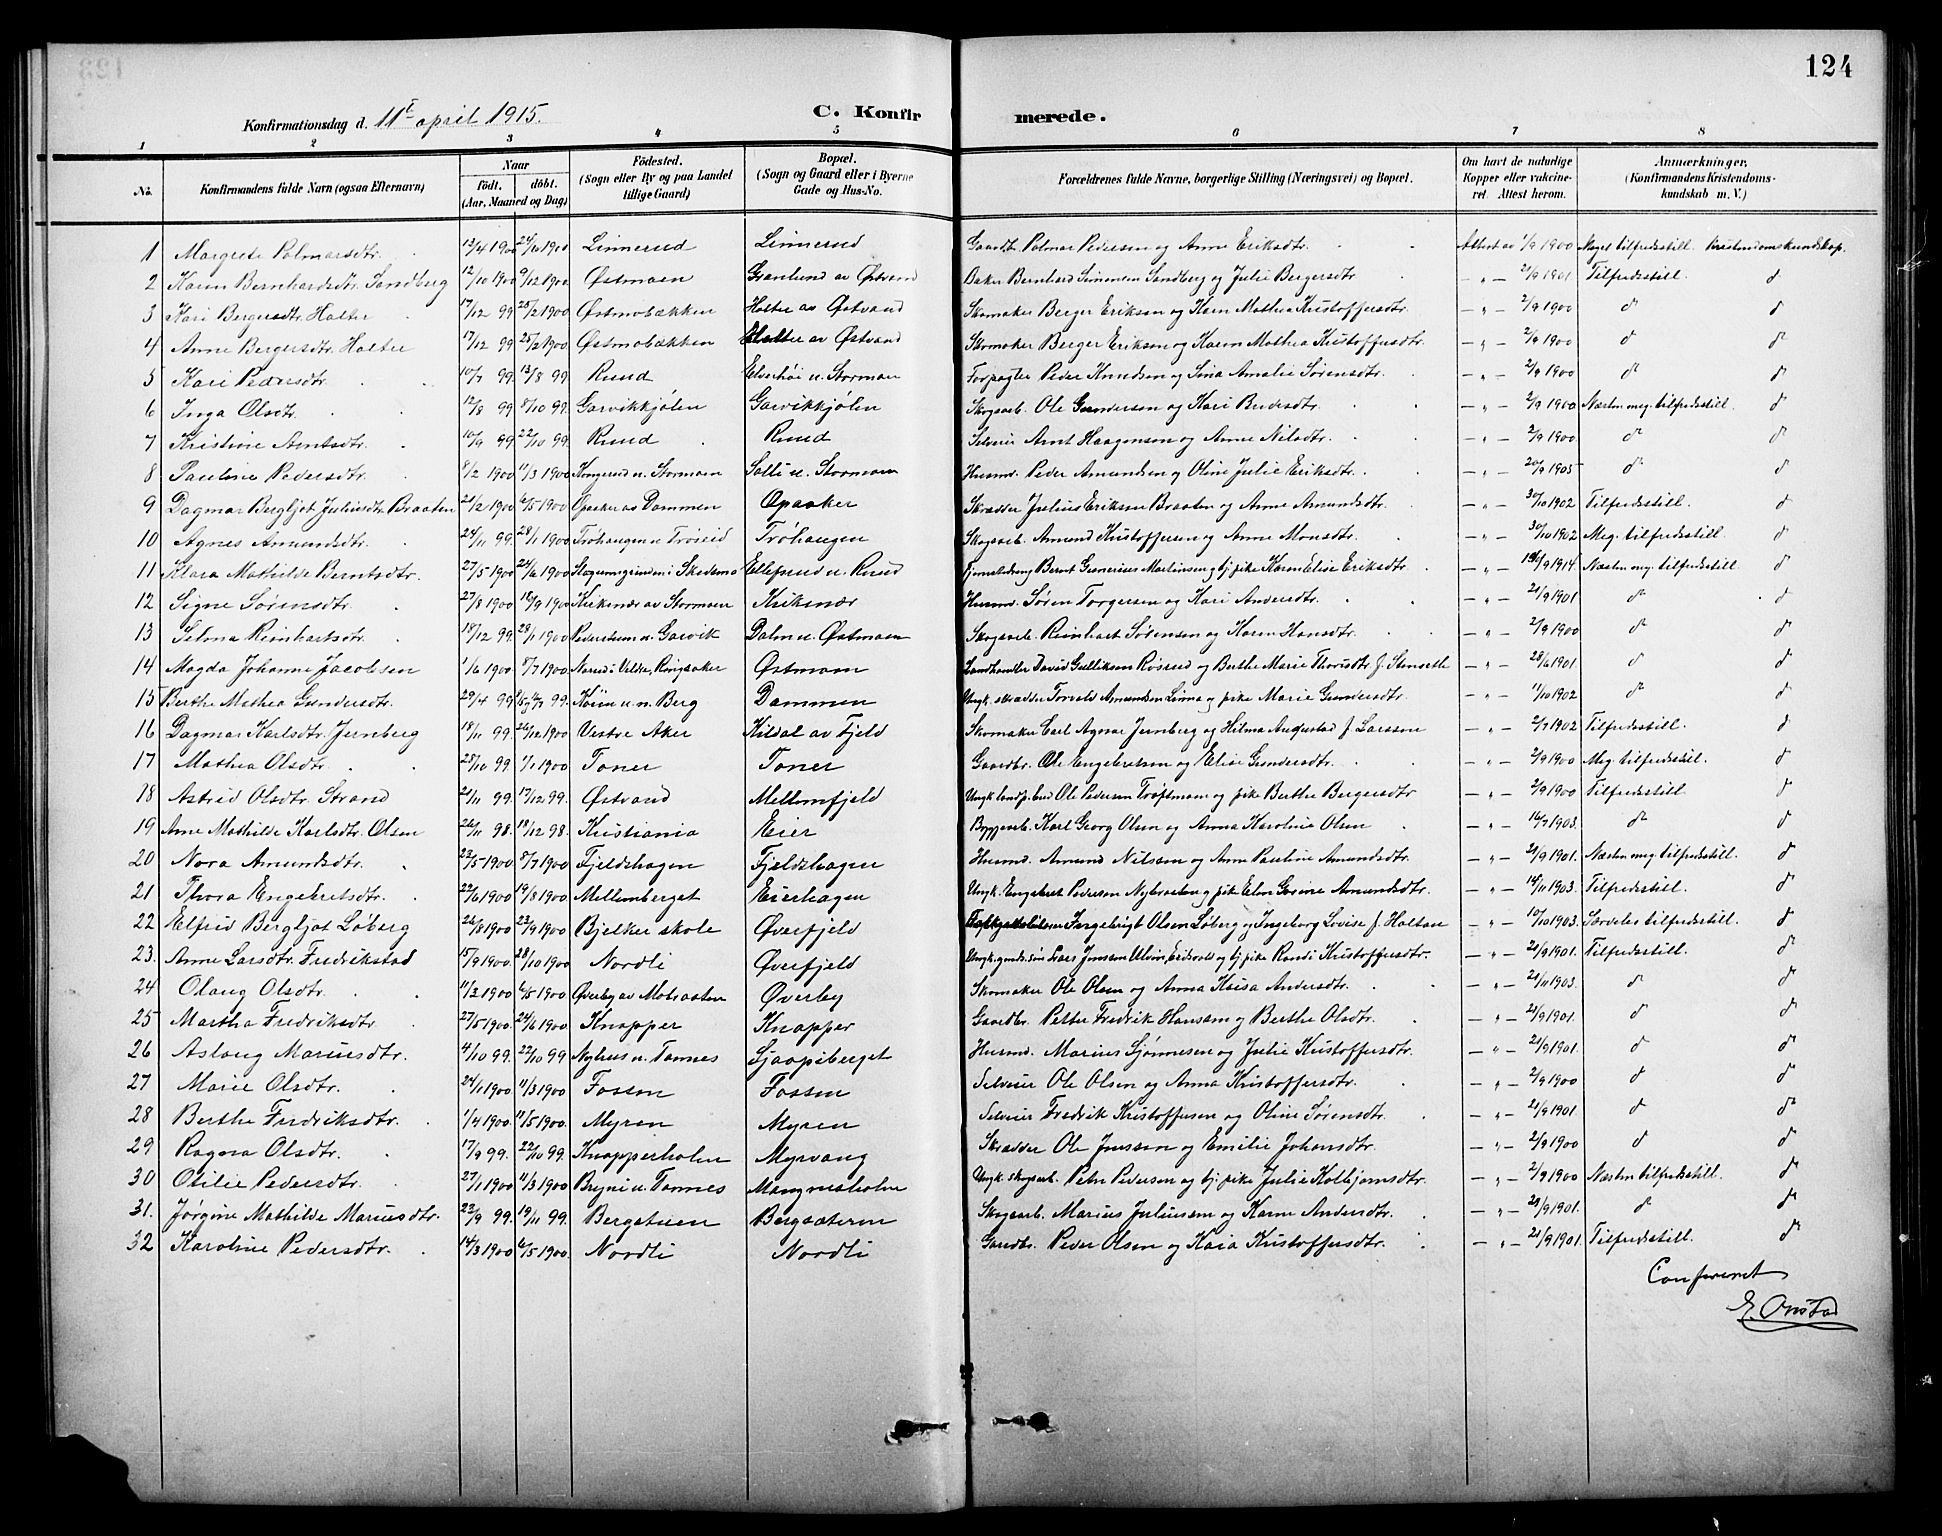 124
Konfirmationsdag d. 11te april 1915. C. Konfirmerede.
1 2 3 4 5 6 7 8
No. Konfirmandens fulde Navn (ogsaa Efternavn) Naar födt. döbt. (Aar, Maaned og Dag) Födested. (Sogn eller By og paa Landet tillige Gaard) Bopæl. (Sogn og Gaard eller i Byerne Gade og Hus-No. Forældrenes fulde Navne, borgerlige Stilling (Næringsvei) og Bopæl. Om havt de naturlige Kopper eller vakcineret. Attest herom. Anmærkninger. (Konfirmandens Kristendomskundskab m. V.)
1 Margrete Palmarsdtr. 13/4 1900 24/6 1900 Linnerud Linnerud Gaardbr. Palmar Pedersen og Anne Eriksdtr. Attest av 1/9 1900 Meget tilfredsstill. Kristendomskundskap.
2 Karen Bernhardsdtr. Sandberg 12/10 1900 9/12 1900 Østmoen Granlund av Østvand Baker Bernhard Simensen Sandberg og Julie Bergersdtr — " — 2/9 1901. Tilfredsstill. d
3 Kari Bergersdtr. Halter 17/12 99 25/2 1900 Østmobækken Halter av Østvand Skomaker Berger Eriksen og Karen Mathea Kristoffersdtr. — " — 2/9 1900 d d
4 Anne Bergersdtr. Halter 17/12 99 25/2 1900 Østmobækken Halter av Østvand Skomaker Berger Eriksen og Karen Mathea Kristoffersdtr. — " — 2/9 1900 d d
5 Kari Pedersdtr. 10/7 99. 13/8 99 Ruud Elverhöi u. Stormoen Forpagter Peder Knudsen og Sina Amalie Sørensdtr. — " — 2/9 1900 d d
6 Inga Olsdtr. 12/8 99 8/10 99. Garvikkjølen Garvikkjølen Skogsarb. Ole Gundersen og Kari — " — 2/9 1900 Næsten meg. tilfredsstill. d
7 Kristine Arntsdtr. 10/9 99 22/10 99. Ruud Ruud Selveier Arnt Haagensen og Anne Nilsdtr. — " — 2/9 1900 d d
8 Pauline Pedersdtr. 8/2 1900 11/3 1900 Kongerud u. Stormoen Solli u. Stormoen Husmd. Peder Amundsen og Oline Julie Eriksdtr. — " — 20/9 1905 d d
9 Dagmar Bergljot Juliusdtr. Braaten 21/2 1900 6/5 1900 Opaaker av Dammen Opaaker Skrædder Julius Eriksen Braaten og Anne Amundsdtr. — " — 30/10 1902 Tilfredsstill. d
10 Agnes Amundsdtr. 24/11 99. 28/1 1900 Trøhaugen u. Trøseid Trøhaugen Skogsarb. Amund Kristoffersen og Anne Monsdtr. — " — 30/10 1902 Meg. tilfredsstill. d
11 Klara Mathilde Berntsdtr. 27/5 1900 24/6 1900 i Skedsmo Ellefsrud u. Ruud Bernt Gunerius Martinsen og tj. pike Karen Elise Eriksdtr. — " — 1914 Næsten meg. tilfredsstill. d
12 Signe Sørensdtr. 27/8 1900 16/9 1900 Kirkenær av Stormoen Kirkenær Husmd. Søren Torgersen og Kari Andersdtr. — " — 21/9 1901 d d
13 Selma Reinhartsdtr. 18/12 99. 29/1 1900 Pederstuen u. Garvik Dalen u. Østmoen Skogsarb. Reinhart Sørensen og Karen Hansdtr. — " — 2/9 1900 d d
14 Magda Johanne Jacobsen 1/6 1900 8/7 1900 i Veldre, Ringsaker Østmoen Landhandler David Gulliksen Røserud og Berthe Marie Thorsdtr. f. Stenseth — " — 28/6 1901. d d
15 Berthe Mathea Gundersdtr. 29/4 99 99. Köien u. n. Berg Dammen Ungk. skrædder Torvald Amundsen Linna og pike Marie Gundersdtr. — " — 11/10 1902 d d
16 Dagmar Karlsdtr. Jernberg 18/11 99. 26/12 1900 Vestre Aker Kildal av Fjeld Skomaker Carl Agnar Jernberg og Hilma Augustad f. Larsson — " — 2/7 1902 Tilfredsstill. d
17 Mathea Olsdtr. 28/10 99. 7/1 1900 Toner Toner Gaardbr. Ole Engebretsen og Elise Gundersdtr. — " — 2/9 1900 Meg. tilfredsstill. d
18 Astrid Olsdtr. Strand 21/11 99. 17/12 99. Østvand Mellemfjeld Ungk. Ole Pedersen Trøftmoen og pike Berthe Bergersdtr — " — 2/9 1900 Tilfredsstill. d
19 Anne Mathilde Karlsdtr. Olsen 26/11 98. 18/12 98. Kristiania Eier Byggesarb. Karl Georg Olsen og Anna Karoline Olsen — " — 16/7 1903. d d
20 Nora Amundsdtr. 23/5 1900 8/7 1900 Fjeldshagen Fjeldshagen Husmd. Amund Nilssen og Anne Pauline Amundsdtr. — " — 21/9 1901. Næsten meg. tilfredsstill. d
21 Thora Engebretsdtr. 22/6 1900 19/8 1900 Mellemberget Eierhagen Ungk. Engebret Pedersen Nybraaten og pike Elen Gorine Amundsdtr. — " — 14/11 1903. Tilfredsstill. d
22 Elfrid Bergljot Løberg 26/8 1900 23/9 1900 Bjelker skole Øverfjeld Ingebrigt Olsen Løberg og Ingeborg Lovise f. Haltan — " — 10/10 1903. Særdeles tilfredsstill. d
23. Anne Larsdtr. Fredrikstad 15/9 1900. 28/10 1900 Nordli Øverfjeld Ungk. gaards.søn Lars Jensen Ulvin, Eidsvold og tj. pike Randi Kristoffersdtr. — " — 21/9 1901. Tilfredsstill. d
24 Olaug Olsdtr. 11/3 1900 6/5 1900 Øverby av Motraaten Øverby Skomaker Ole Olsen og Anna Kaisa Andersdtr. — " — 21/11 1903. d d
25 Martha Fredriksdtr. 27/5 1900. 24/6 1900 Knapper Knapper Gaardbr. Petter Fredrik Hansen og Berthe Olsdtr. — " — 21/9 1901. d d
26 Aslaug Mariusdtr. 4/10 99. 22/10 99 Nyhus u. Tannes Sjaapsberget Husmd. Marius Sjønnesen og Julie Kristoffersdtr. — " — 21/9 1901. d d
27 Marie Olsdtr. 24/1 1900 11/3 1900 Fossen Fossen Selveier Ole Olsen og Anna Kristoffersdtr. — " — 2/9 1900 d d
28 Berthe Fredriksdtr. 1/4 1900 11/5 1900. Myren Myren Selveier Fredrik Kristoffersen og Oline Sørensdtr. — " — 21/9 1901. d d
29 Ragna Olsdtr. 17/9 99. 22/10 99. Knapperholen Myrvang Skrædder Ole Jenssen og Emilie Johansdtr. — " — 2/9 1900 d d
30 Otilie Pedersdtr. 27/1 1900 11/3 1900. Bryni u. Tannes Mangnesholen Ungk. skogsarb. Peter Pedersen og tj. pike Julie Kolbjørnsdtr. — " — 2/9 1900 Næsten tilfredsstill. d
31. Jørgine Mathilde Mariusdtr. 23/9 99. 19/11 99. Bergstuen Bergsæteren Skogsarb. Marius Juliussen og Karen Andersdtr. — " — 21/9 1901. d d
32 Karoline Pedersdtr. 14/3 1900 6/5 1900. Nordli Nordli Gaardbr. Peder Olsen og Kaia Kristoffersdtr. — " — 21/9 1901. Tilfredsstill. d
Confereret
E. Onstad